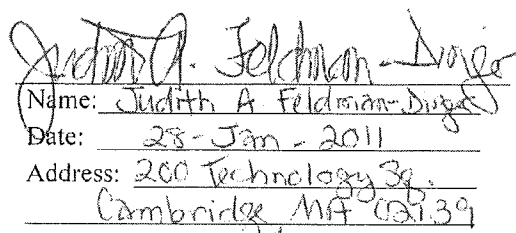 Judith A. Feldman-
Name: Judith A Feldman-
Date: 28-Jan-2011
Address: 200 Technology Sq.
Cambridge MA 02139